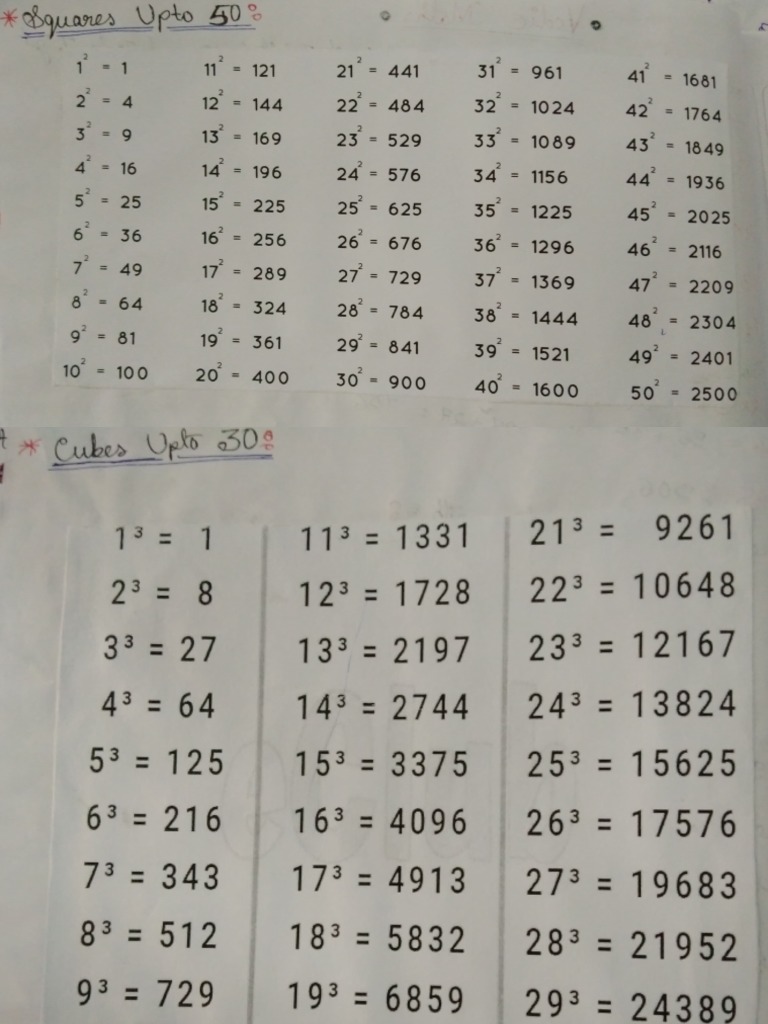 * Squares Upto 50:
1² = 1 11² = 121 21² = 441 31² = 961 41² = 1681
2² = 4 12² = 144 22² = 484 32² = 1024 42² = 1764
3² = 9 13² = 169 23² = 529 33² = 1089 43² = 1849
4² = 16 14² = 196 24² = 576 34² = 1156 44² = 1936
5² = 25 15² = 225 25² = 625 35² = 1225 45² = 2025
6² = 36 16² = 256 26² = 676 36² = 1296 46² = 2116
7² = 49 17² = 289 27² = 729 37² = 1369 47² = 2209
8² = 64 18² = 324 28² = 784 38² = 1444 48² = 2304
9² = 81 19² = 361 29² = 841 39² = 1521 49² = 2401
10² = 100 20² = 400 30² = 900 40² = 1600 50² = 2500
* Cubes Upto 30:
1³ = 1 11³ = 1331 21³ = 9261
2³ = 8 12³ = 1728 22³ = 10648
3³ = 27 13³ = 2197 23³ = 12167
4³ = 64 14³ = 2744 24³ = 13824
5³ = 125 15³ = 3375 25³ = 15625
6³ = 216 16³ = 4096 26³ = 17576
7³ = 343 17³ = 4913 27³ = 19683
8³ = 512 18³ = 5832 28³ = 21952
9³ = 729 19³ = 6859 29³ = 24389